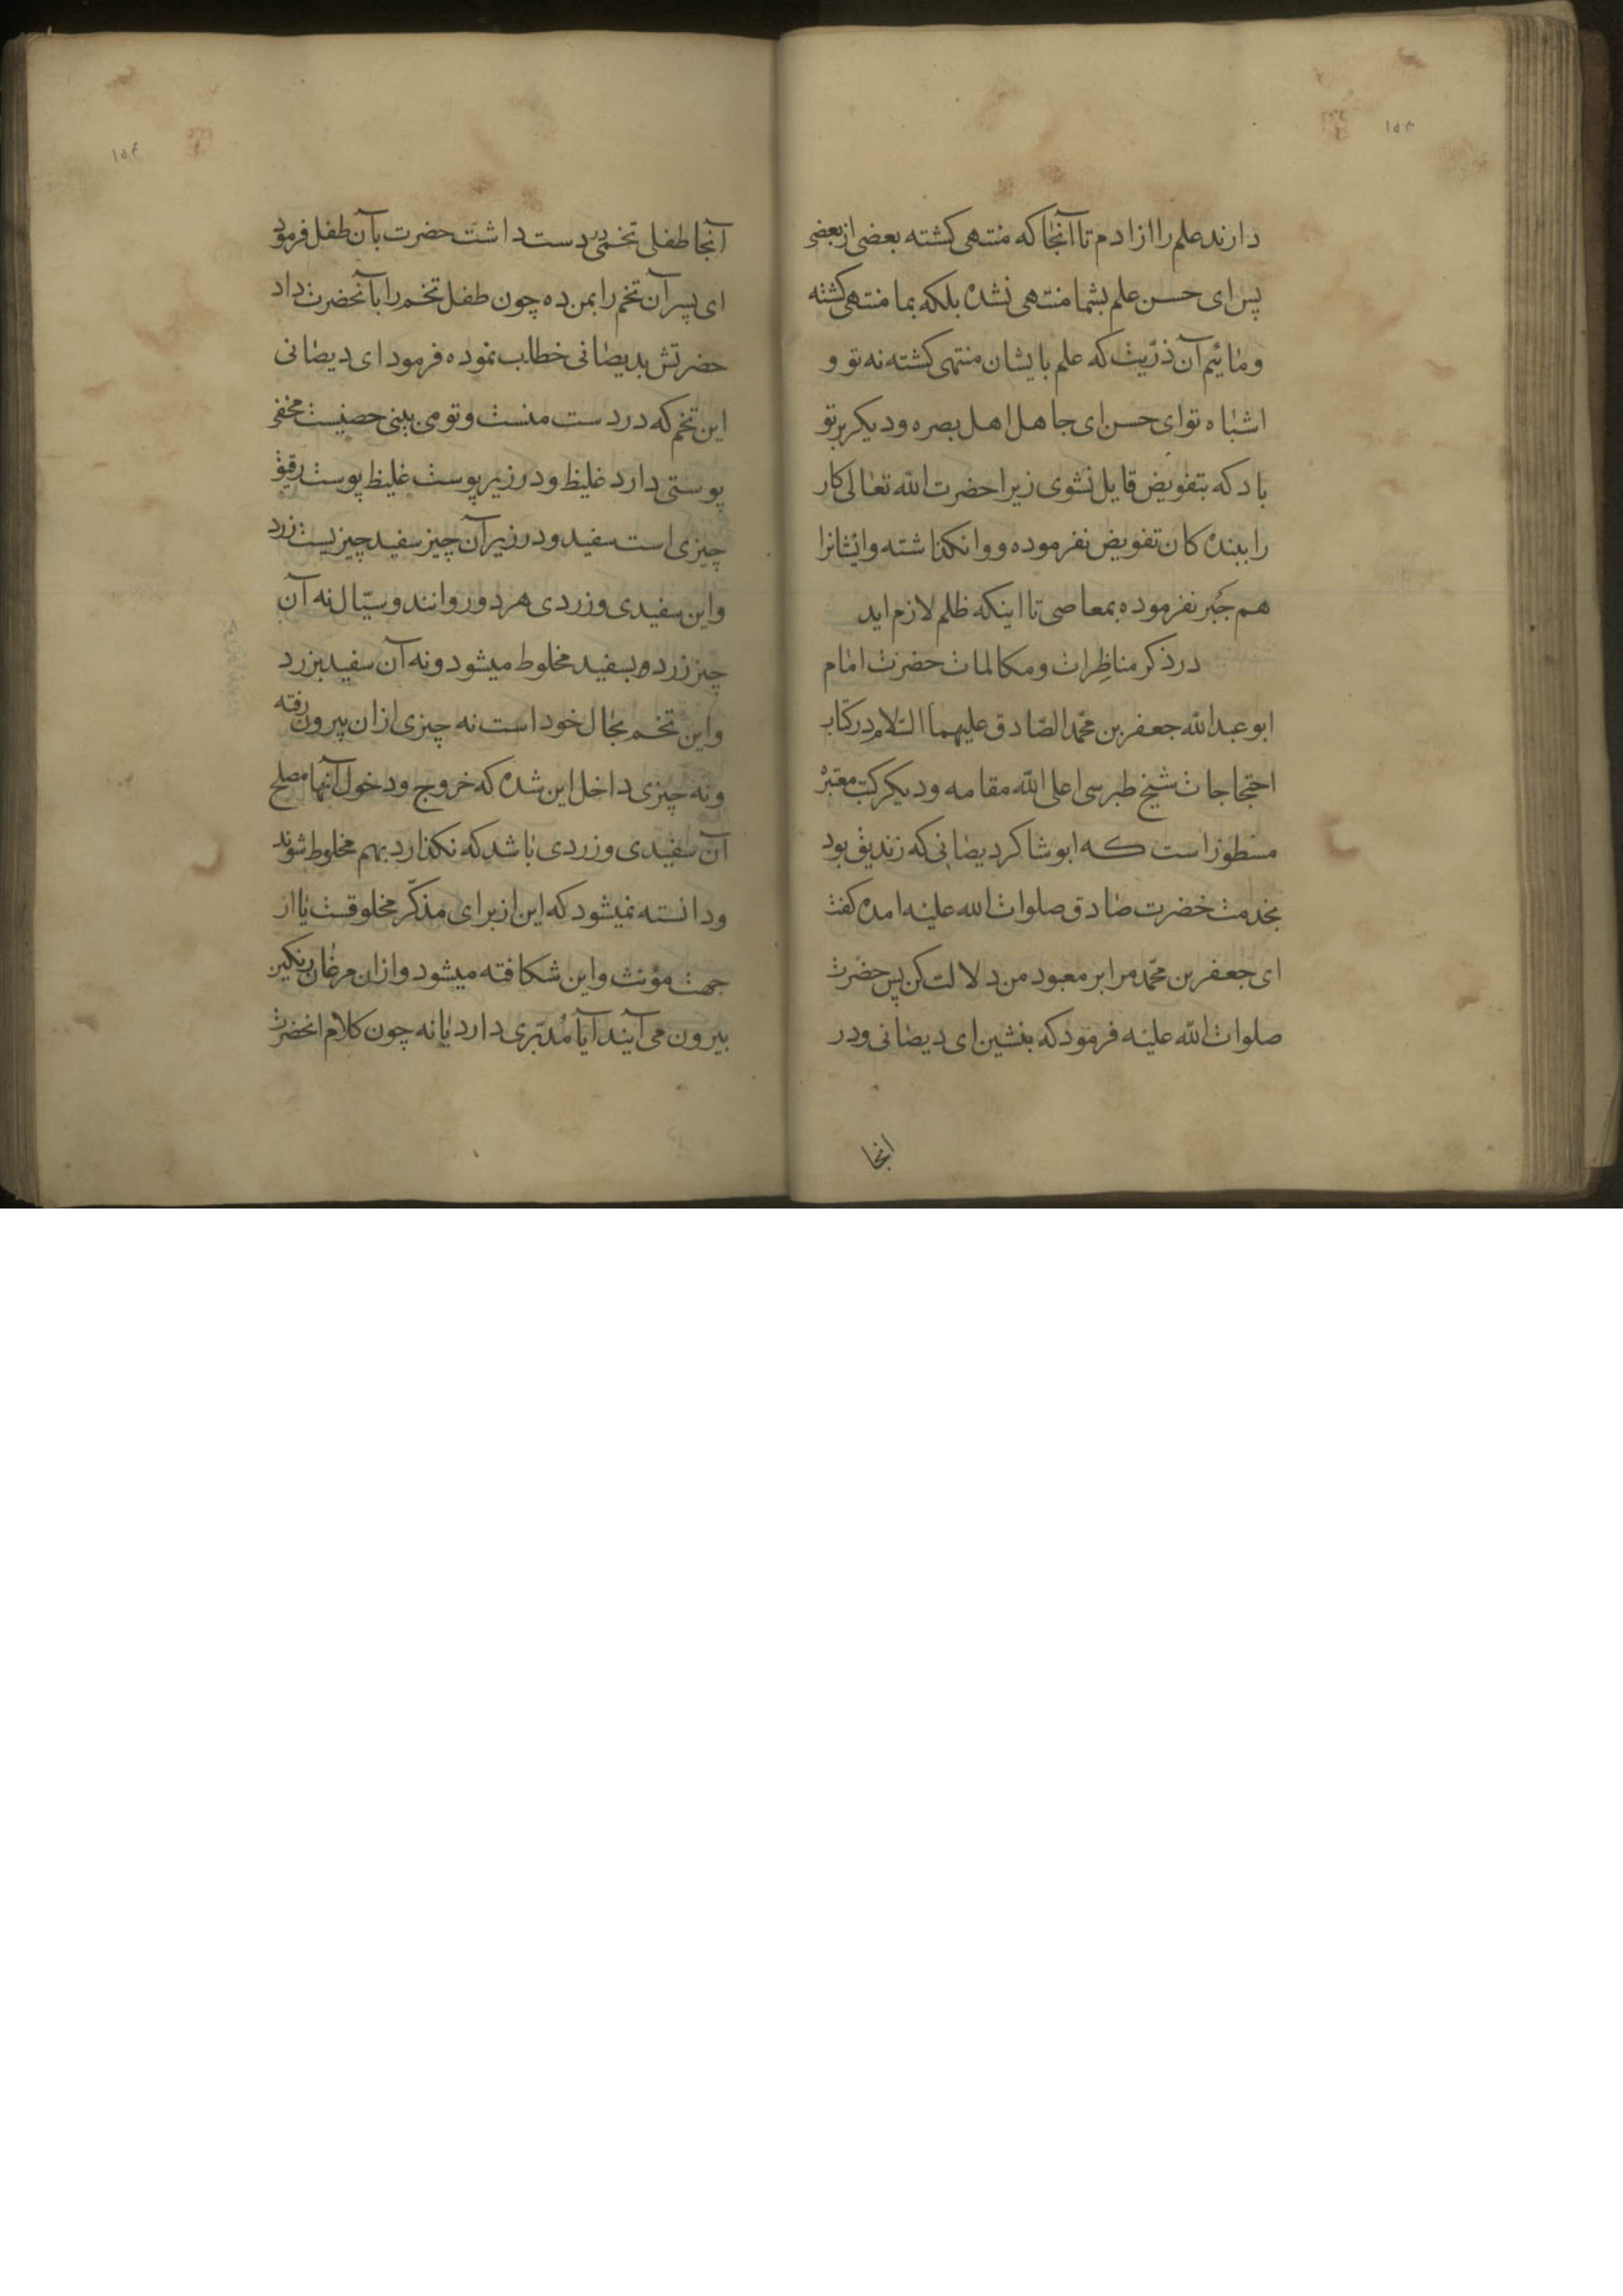 ۱۵۳
دارند علم را از ادم تا آنجا که منتهی کشته بعضی از بعضی
پس ای حسن علم بشما منتهی نشده بلکه بما منتهی کشته
و مائیم آن ذرّیت که علم بایشان منتهی کشته نه تو و
اشباه تو ای حسن ای جاهل اهل بصره و دیکر بر تو
باد که بتفویض قایل نشوی زیرا حضرت الله تعالی کار
را ببنده کان تفویض نفرموده و وا نکذاشته و ایشانرا
هم جَبر نفرموده بمعاصی تا اینکه ظلم لازم اید
در ذکر مناظرات و مکالمات حضرت امام
ابو عبدالله جعفر بن محمّد الصّادق علیهما السّلام در کتاب
احتجاجات شیخ طبرسی اعلی الله مقامه و دیکر کتب معتبره
مسطور است که ابو شاکر دیصانی که زندیق بود
بخدمت حضرت صادق صلوات الله علیه امده کفت
ای جعفر بن محمّد مرا بر معبود من دلالت کن پس حضرت
صلوات الله علیه فرمود که بنشین ای دیصانی و در
انجا
۱۵۴
آنجا طفلی تخمی در دست داشت حضرت بآن طفل فرمود
ای پسر آن تخم را بمن ده چون طفل تخم را بآنحضرت داد
حضرتش بدیصانی خطاب نموده فرمود ای دیصانی
این تخم که در دست منست و تو می بینی حصنیست مخفی
پوستی دارد غلیظ و در زیر پوست غلیظ پوست رقیق
چیزی است سفید و در زیر آن چیز سفید چیزیست زرد
و این سفیدی و زردی هر دو روانند و سیّال نه آن
چیز زرد بسفید مخلوط میشود و نه آن سفید بزرد
و این تخم بحال خود است نه چیزی از ان بیرون رفته
و نه چیزی داخل این شده که خروج و دخول آنها مصلح
آن سفیدی و زردی باشد که نکذارد بهم مخلوط شوند
و دانسته نمیشود که این از برای مذکّر مخلوقست یا از
جهت مؤنث و این شکافته میشود و از ان مرغان رنکین
بیرون می آیند آیا مُدبّری دارد یا نه چون کلام انحضرت